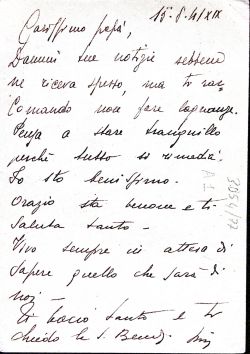 15-8-41/XIX
Carissimo papà,
Dammi tue notizie sebbene
ne riceva spesso, ma ti rac-
Comando non fare lagnanze.
Pensa a stare tranquillo
perché tutto si rimedia.
Io sto benissimo.
Orazio sta benone e ti
Saluta tanto -
Vivo sempre in attesa di
Sapere quello che sarà di
noi -
Ti bacio tanto e ti
chiedo la S. Bened.